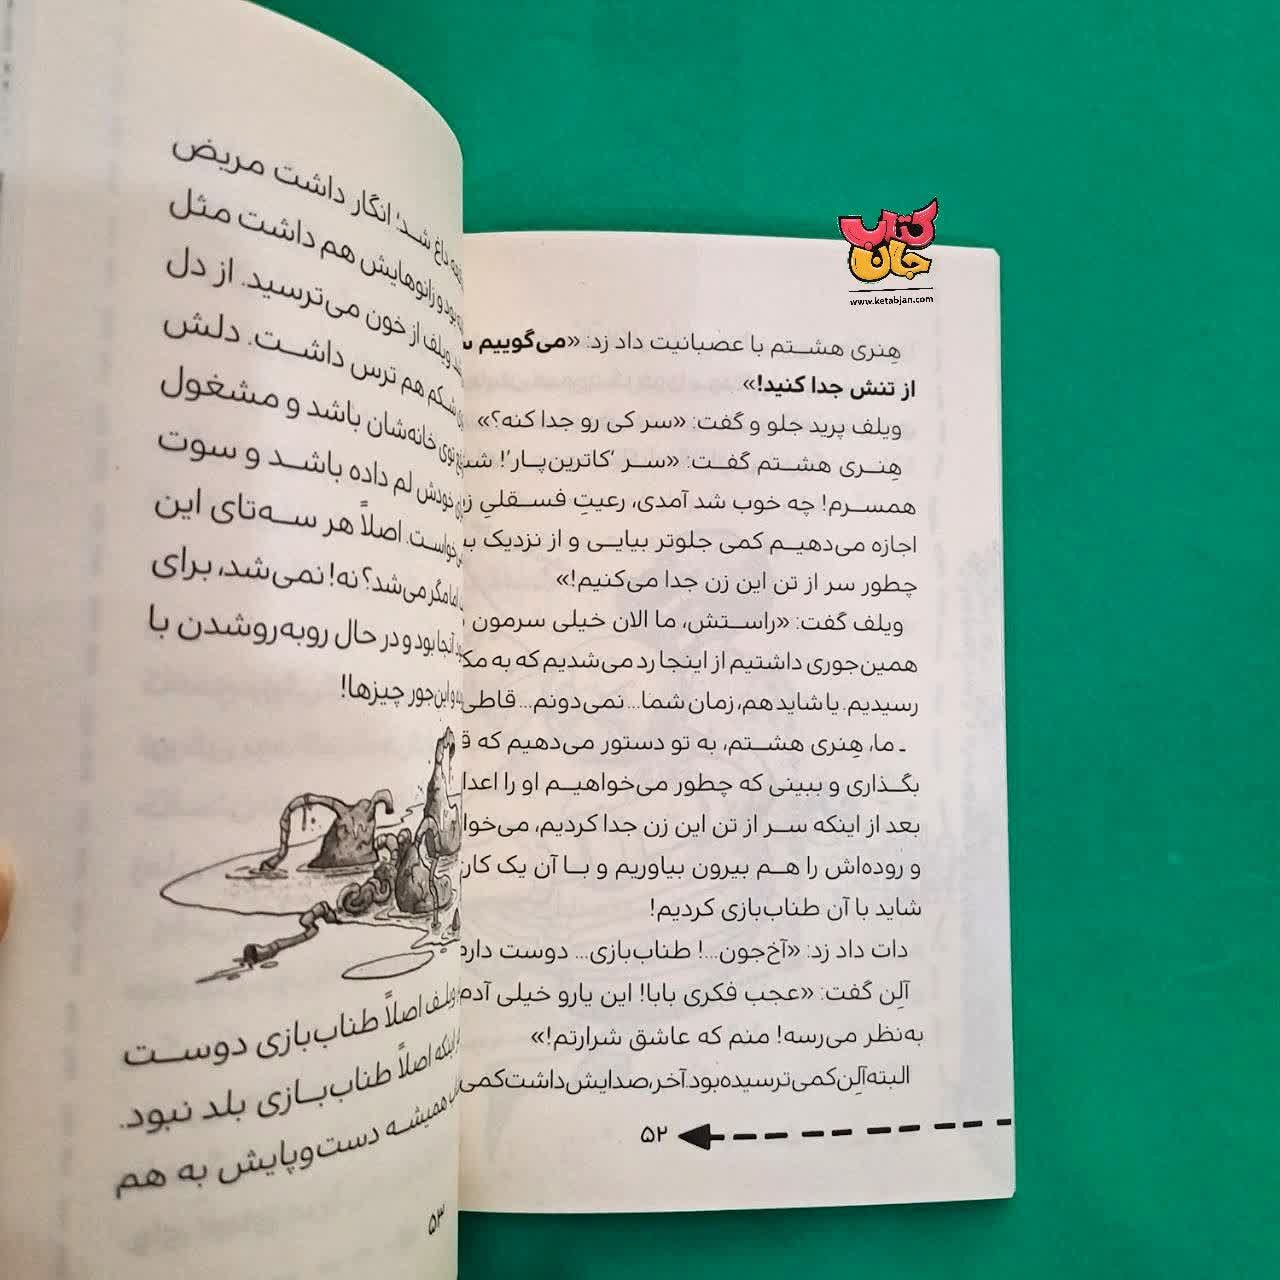 کتاب
جان
www.ketabjan.com
هِنری هشتم با عصبانیت داد زد: «می‌گوییم
از تنش جدا کنید!»
ویلف پرید جلو و گفت: «سر کی رو جدا کنه؟»
هِنری هشتم گفت: «سر ‘کاترین‌پار’!
همسرم! چه خوب شد آمدی، رعیتِ فسقلیِ
اجازه می‌دهیم کمی جلوتر بیایی و از نزدیک
چطور سر از تن این زن جدا می‌کنیم!»
ویلف گفت: «راستش، ما الان خیلی سرمون
همین‌جوری داشتیم از اینجا رد می‌شدیم که به
رسیدیم. یا شاید هم، زمان شما... نمی‌دونم... قاطی
ـ ما، هِنری هشتم، به تو دستور می‌دهیم که
بگذاری و ببینی که چطور می‌خواهیم او را
بعد از اینکه سر از تن این زن جدا کردیم،
و روده‌اش را هم بیرون بیاوریم و با آن یک
شاید با آن طناب‌بازی کردیم!
دات داد زد: «آخ‌جون...! طناب‌بازی... دوست
آلِن گفت: «عجب فکری بابا! این یارو خیلی
به‌نظر می‌رسه! منم که عاشق شرارتم!»
البته آلِن کمی ترسیده بود. آخر، صدایش داشت کمی
۵۲
داغ شد؛ انگار داشت مریض
بود و زانوهایش هم داشت مثل
ویلف از خون می‌ترسید. از دل
شکم هم ترس داشت. دلش
توی خانه‌شان باشد و مشغول
خودش لم داده باشد و سوت
اصلاً هر سه‌تای این
اما مگر می‌شد؟ نه! نمی‌شد، برای
آنجا بود و در حال روبه‌روشدن با
و این‌جور چیزها!
ویلف اصلاً طناب‌بازی دوست
اینکه اصلاً طناب‌بازی بلد نبود.
همیشه دست‌وپایش به هم
۵۳